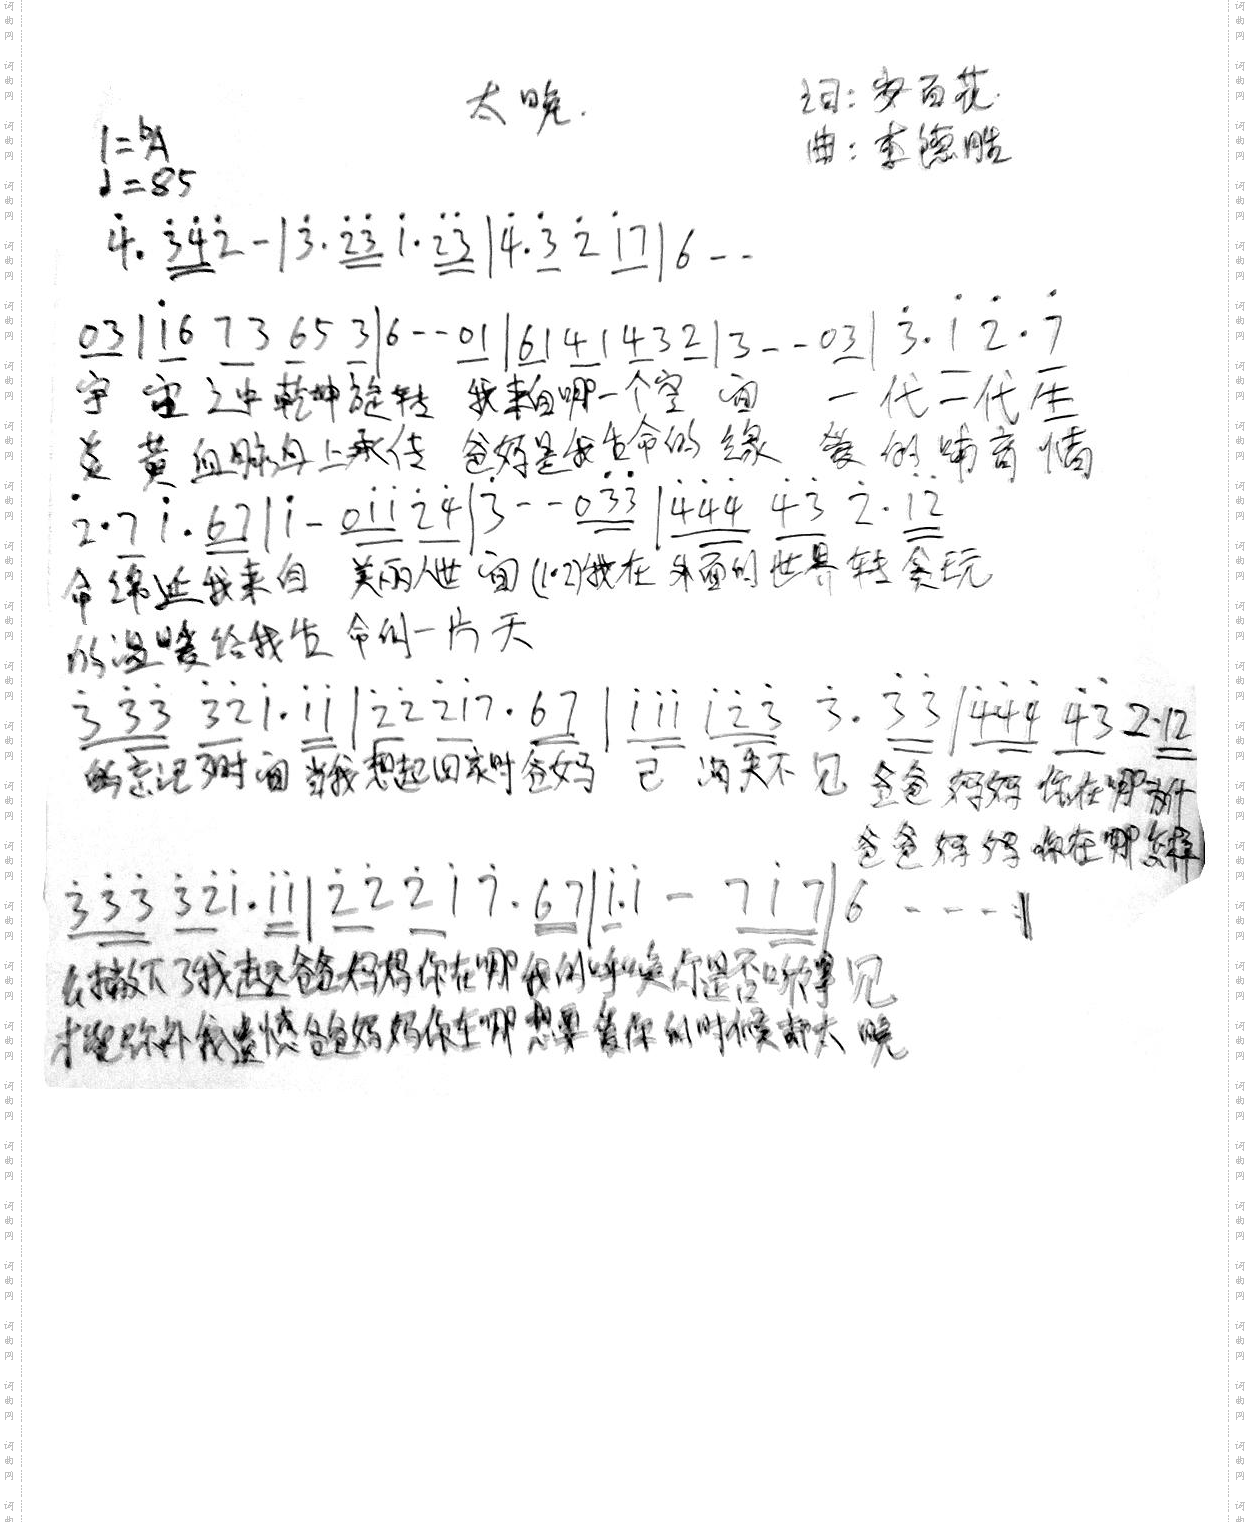 太晚.
词: 安百花.
曲: 李德胜
1=♭A
♩=85
4̇. 3̇4̇2̇ - | 3̇. 2̇3̇ 1̇. 2̇3̇ | 4̇. 3̇ 2̇ 1̇7 | 6 - -
03 | 1̇6 73 65 3 | 6 - - 01 | 61 41 43 2 | 3 - - 03 | 3̇. 1̇ 2̇. 7
宇宙之中乾坤旋转 我来自哪一个空间 一代二代生
炎黄血脉身上承传 爸妈是我生命的缘 爱的哺育情
2̇. 7 1̇. 67 | 1̇ - 01̇1̇ 2̇4̇ | 3̇ - - 03̇3̇ | 4̇4̇4̇ 4̇3̇ 2̇. 1̇2̇
命绵延我来自 美丽人世间 (1.2)我在外面的世界转贪玩
的温暖给我生命的一片天
3̇ 3̇3̇ 3̇2̇ 1̇. 1̇1̇ | 2̇2̇ 2̇1̇ 7. 67 | 1̇1̇1̇ 1̇2̇3̇ 3̇. 3̇3̇ | 4̇4̇4̇ 4̇3̇ 2. 12
的忘记了时间当我想起回家时爸妈 已 消失不见 爸爸妈妈你在哪为什
爸爸妈妈你在哪怎样
3̇3̇3̇ 3̇2̇1̇. 1̇1̇ | 2̇2̇ 2̇1̇ 7. 67 | 1̇. 1̇ - 71̇7 | 6 - - - :‖
么撇下了我走远爸爸妈妈你在哪我的呼唤你是否听得见
才能弥补我遗憾爸爸妈妈你在哪想要爱你的时候却太晚
词曲网